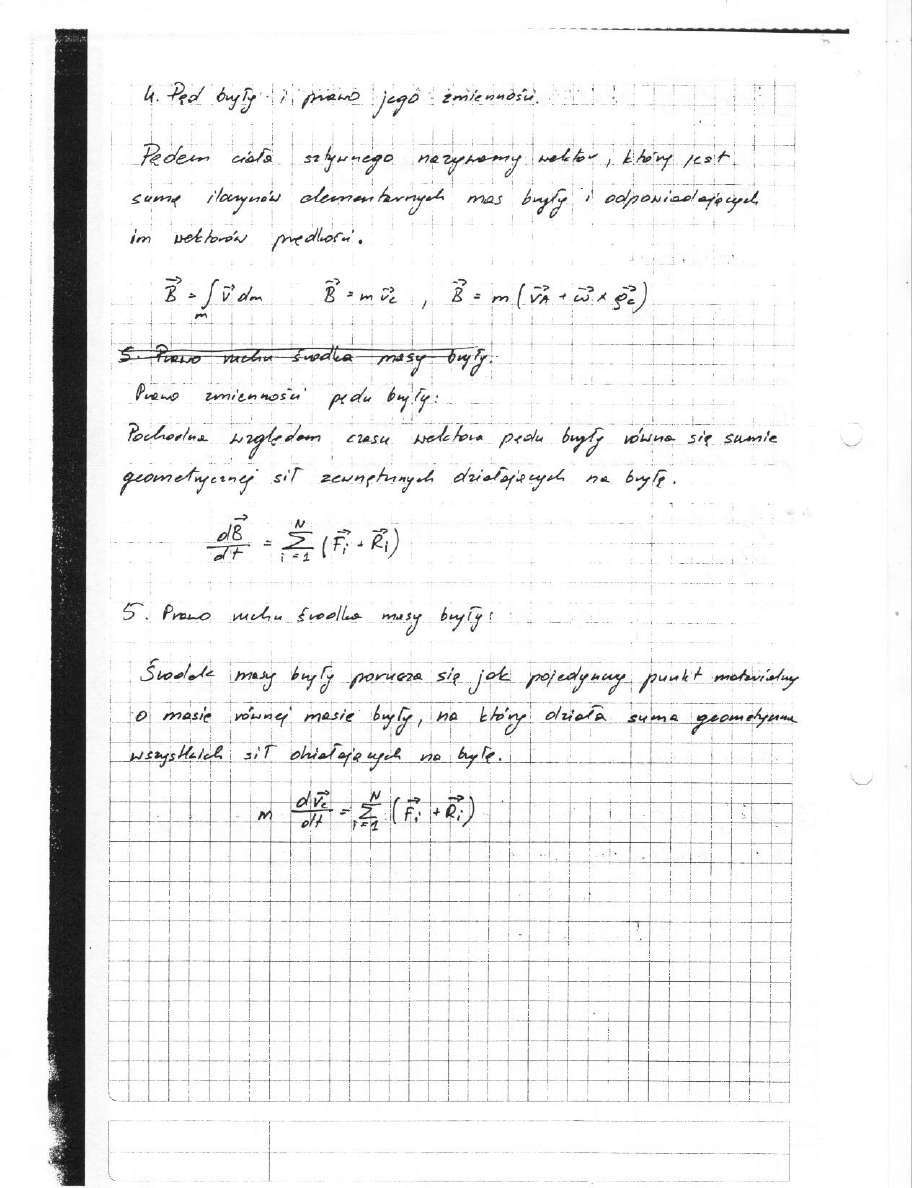 4. Pęd bryły i prawo jego zmienności.
Pędem ciała sztywnego nazywamy wektor, który jest
sumą iloczynów elementarnych mas bryły i odpowiadających
im wektorów prędkości.
$\vec{B} = \int_m \vec{v} dm$    $\vec{B} = m \vec{v_c}$ , $\vec{B} = m (\vec{v_A} + \vec{\omega} \times \vec{\rho_c})$
5. Prawo ruchu środka masy bryły.
Prawo zmienności pędu bryły:
Pochodna względem czasu wektora pędu bryły równa się sumie
geometrycznej sił zewnętrznych działających na bryłę.
$\frac{d\vec{B}}{dt} = \sum_{i=1}^{N} (\vec{F_i} + \vec{R_i})$
5. Prawo ruchu środka masy bryły:
Środek masy bryły porusza się jak pojedynczy punkt materialny
o masie równej masie bryły, na który działa suma geometryczna
wszystkich sił działających na bryłę.
$m \frac{d\vec{v_c}}{dt} = \sum_{i=1}^{N} (\vec{F_i} + \vec{R_i})$